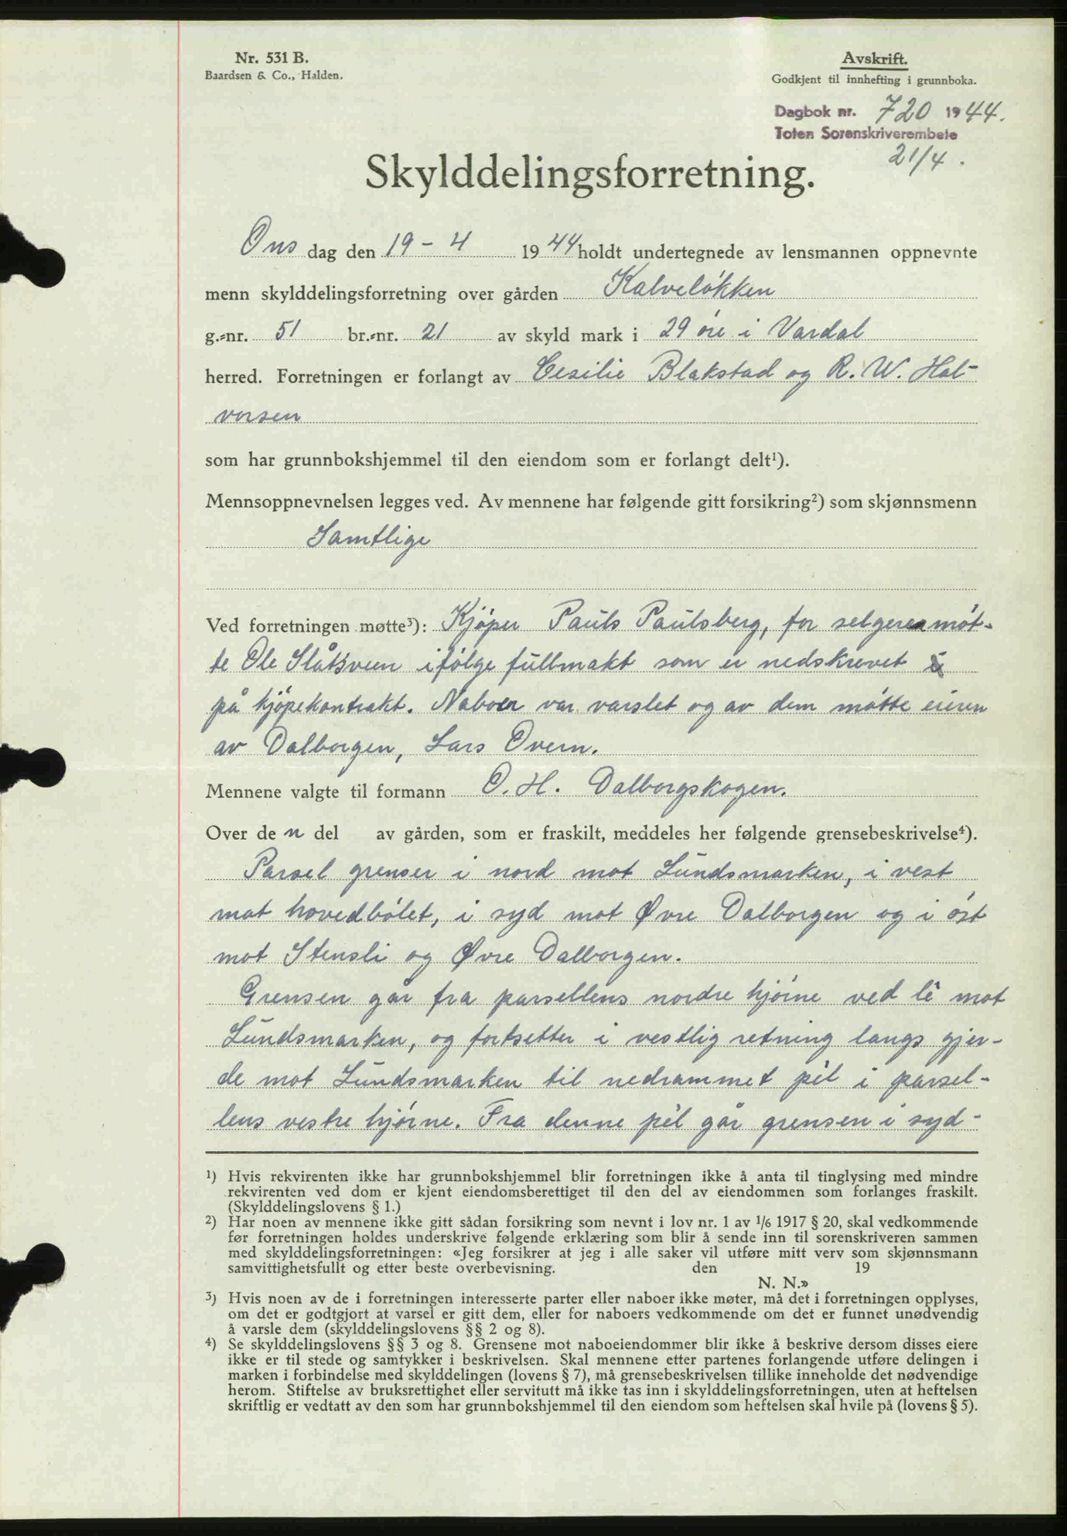 Nr. 531 B.
Baardsen & Co., Halden.
Avskrift.
Godkjent til innhefting i grunnboka.
Dagbok nr. 720 1944.
Toten Sorenskriverembete
21/4.
Skylddelingsforretning.
Ons dag den 19 - 4 1944 holdt undertegnede av lensmannen oppnevnte
menn skylddelingsforretning over gården Kalveløkken
g.-nr. 51 br.-nr. 21 av skyld mark i 29 øre i Vardal
herred. Forretningen er forlangt av Cesilie Blakstad og R. W. Hal-
vorsen
som har grunnbokshjemmel til den eiendom som er forlangt delt¹).
Mennsoppnevnelsen legges ved. Av mennene har følgende gitt forsikring²) som skjønnsmenn
Samtlige
Ved forretningen møtte³): Kjøper Pauls Paulsberg, for selgeren møt-
te Ole Slåtsveen ifølge fullmakt som er nedskrevet
på kjøpekontrakt. Naboer var varslet og av dem møtte eieren
av Dalborgen, Lars Overn.
Mennene valgte til formann O. H. Dalborgskogen.
Over de n del av gården, som er fraskilt, meddeles her følgende grensebeskrivelse⁴).
Parsel grenser i nord mot Lundsmarken, i vest
mot hovedbølet, i syd mot Øvre Dalborgen og i øst
mot Stensli og Øvre Dalborgen.
Grensen går fra parsellens nordre hjørne ved le mot
Lundsmarken, og fortsetter i vestlig retning langs gjer-
de mot Lundsmarken til nedrammet pel i parsel-
lens vestre hjørne. Fra denne pel går grensen i syd-
¹) Hvis rekvirenten ikke har grunnbokshjemmel blir forretningen ikke å anta til tinglysing med mindre
rekvirenten ved dom er kjent eiendomsberettiget til den del av eiendommen som forlanges fraskilt.
(Skylddelingslovens § 1.)
²) Har noen av mennene ikke gitt sådan forsikring som nevnt i lov nr. 1 av ¹/₆ 1917 § 20, skal vedkommende
før forretningen holdes underskrive følgende erklæring som blir å sende inn til sorenskriveren sammen
med skylddelingsforretningen: «Jeg forsikrer at jeg i alle saker vil utføre mitt verv som skjønnsmann
samvittighetsfullt og etter beste overbevisning. den 19
N. N.»
³) Hvis noen av de i forretningen interesserte parter eller naboer ikke møter, må det i forretningen opplyses,
om det er godtgjort at varsel er gitt dem, eller for naboers vedkommende om det er funnet unødvendig
å varsle dem (skylddelingslovens §§ 2 og 8).
⁴) Se skylddelingslovens §§ 3 og 8. Grensene mot naboeiendommer blir ikke å beskrive dersom disses eiere
ikke er til stede og samtykker i beskrivelsen. Skal mennene etter partenes forlangende utføre delingen i
marken i forbindelse med skylddelingen (lovens § 7), må grensebeskrivelsen tillike inneholde det nødvendige
herom. Stiftelse av bruksrettighet eller servitutt må ikke tas inn i skylddelingsforretningen, uten at heftelsen
skriftlig er vedtatt av den som har grunnbokshjemmel til den eiendom som heftelsen skal hvile på (lovens § 5).